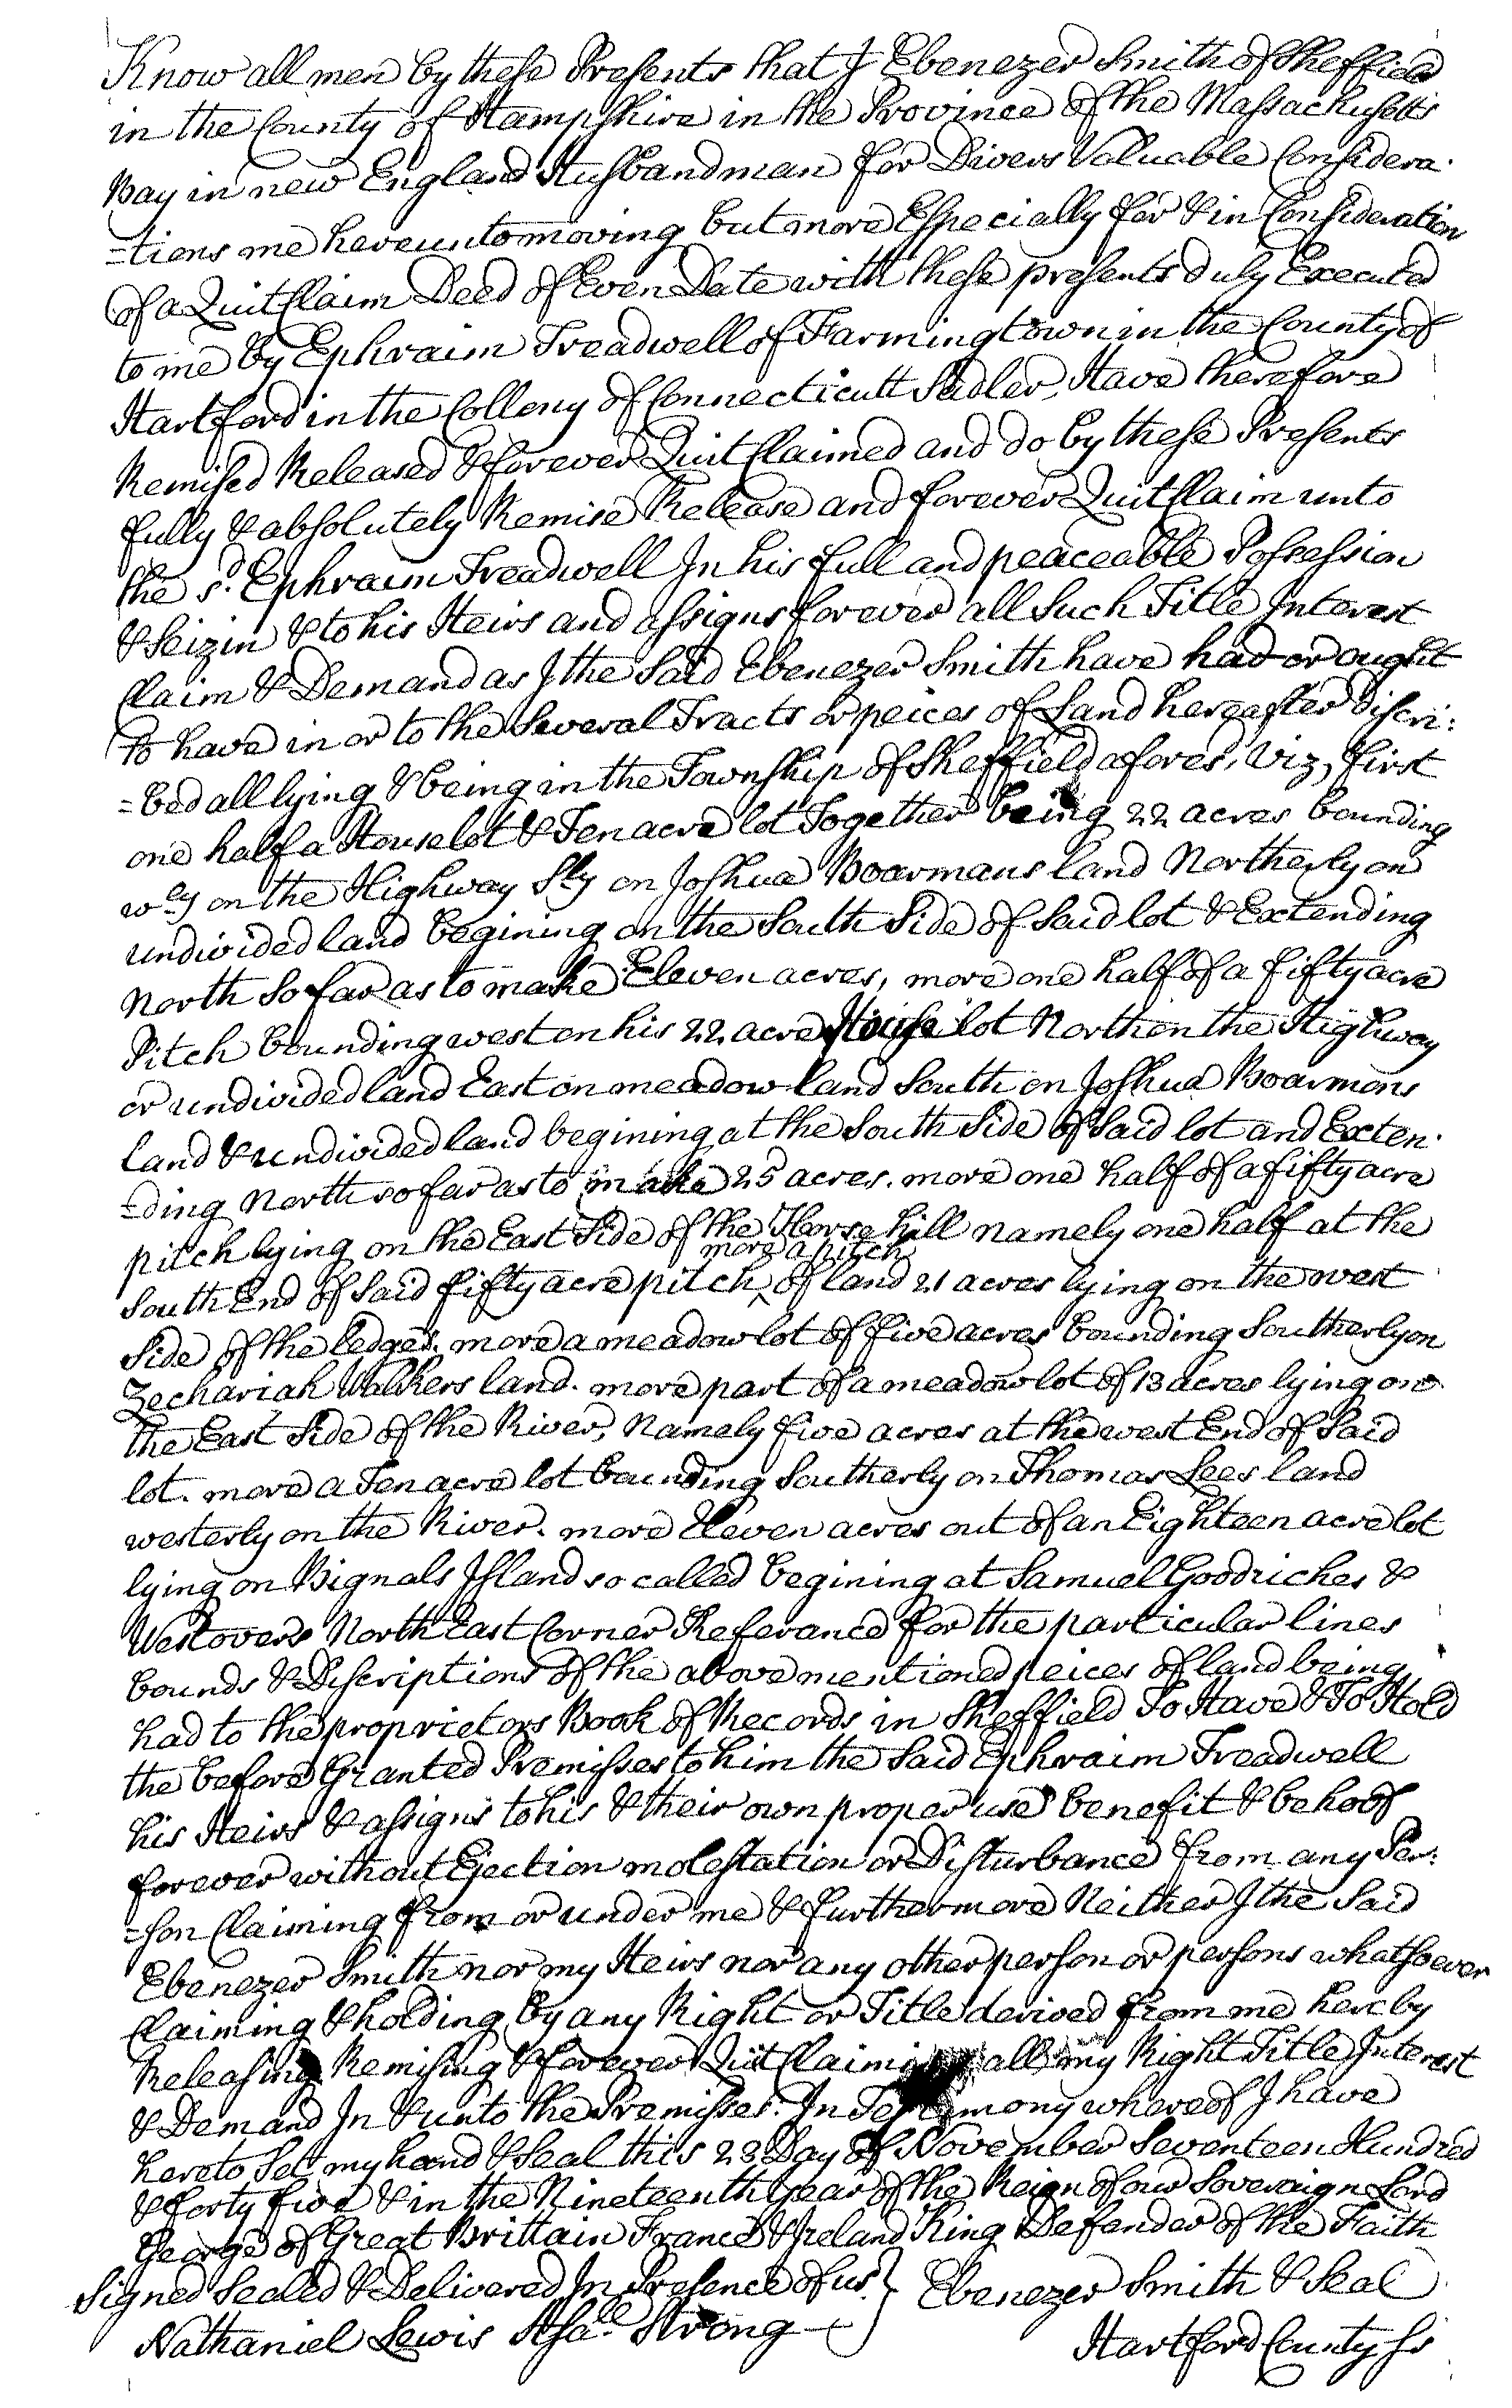 Know all men by these Presents that I Ebenezer Smith of Sheffield
in the County of Hampshire in the Province of the Massachusetts
Bay in new England Husbandman for Divers Valuable Considera-
=tions me hereunto moving but more Especially for & in Consideration
of a QuitClaim Deed of Even Date with these presents duly Executed
to me by Ephraim Treadwell of Farmingtown in the County of
Hartford in the Collony of Connecticutt Sadler, Have therefore
Remised Released & forever QuitClaimed and do by these Presents
fully & absolutely Remise Release and forever QuitClaim unto
the sd. Ephraim Treadwell In his full and peaceable Possession
& Seizin & to his Heirs and assigns forever all Such Title Interest
Claim & Demand as I the Said Ebenezer Smith have had or ought
to have in or to the Several Tracts or peices of Land hereafter Discri:
=bed all lying & being in the Township of Sheffield afores.d Viz, first
one half a Houselot & Ten acre lot Together being 22 acres bounding
wely on the Highway Sly on Joshua Boarmans land Northerly on
undivided land begining on the South Side of Said lot & Extending
North So far as to make Eleven acres, more one half of a fifty acre
Pitch bounding west on his 22 acre House lot North on the Highway
or undivided land East on meadow land South on Joshua Boarmans
land & undivided land begining at the South Side of Said lot and Exten-
=ding North so far as to make 25 acres. more one half of a fifty acre
pitch lying on the East Side of the Horse hill namely one half at the
South End of Said fifty acre pitch ^ more a pitch of land 21 acres lying on the west
Side of the ledges. more a meadow lot of five acres bounding Southerly on
Zechariah Walkers land. more part of a meadow lot of 13 acres lying on
the East Side of the River, Namely five acres at the west End of Said
lot. more a Ten acre lot bounding Southerly on Thomas Lees land
westerly on the River. more Eleven acres out of an Eighteen acre lot
lying on Bignals Island so called begining at Samuel Goodriches &
Westovers North East Corner Referance for the particular lines
bounds & Discriptions of the above mentioned peices of land being
had to the proprietors Book of Records in Sheffield To Have & To Hold
the before Granted Premisses to him the Said Ephraim Treadwell
his Heirs & assigns to his & their own proper use benefit & behoof
forever without Ejection molestation or Disturbance from any Per:
=son Claiming from or under me & furthermore Neither I the Said
Ebenezer Smith nor my Heirs nor any other person or persons whatsoever
Claiming & holding by any Right or Title derived from me hereby
Releasing Remising & forever Quit Claiming all my Right Title Interest
& Demand In & unto the Premisses. In Testimony whereof I have
hereto Set my hand & Seal this 28 Day of November Seventeen Hundred
& forty five & in the Nineteenth year of the Reign of our Soveraign Lord
George of Great Brittain France & Ireland King Defender of the Faith
Signed Sealed & Delivered In Presence of us } Ebenezer Smith & Seal
Nathaniel Lewis Asa.ll Strong
Hartford County Ss